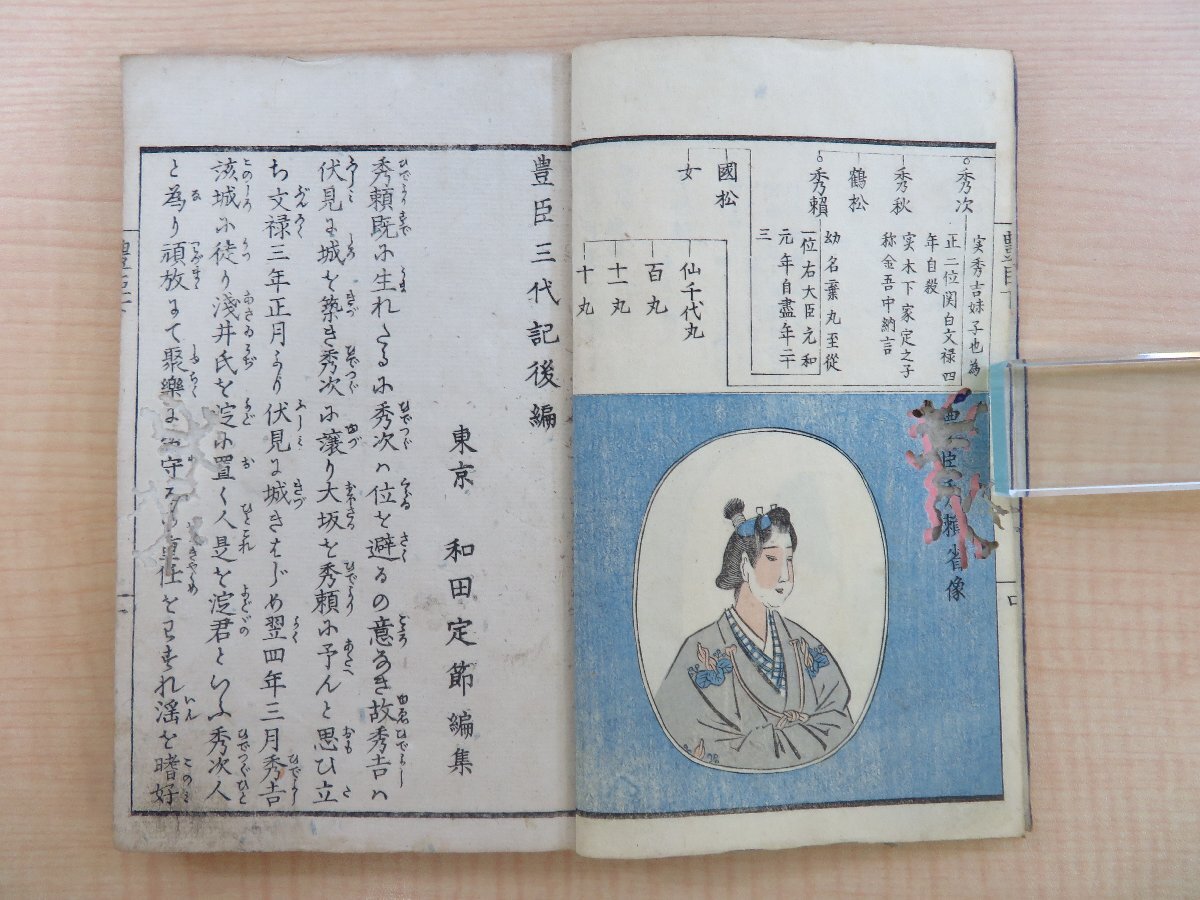 秀次
実秀吉妹子也為
正二位関白文禄四
年自殺
秀秋
実木下家定之子
称金吾中納言
鶴松
秀頼
幼名棄丸至從
一位右大臣元和
元年自盡年二十
三
國松
女
仙千代丸
百丸
十一丸
十丸
臣秀頼省像
豊臣三代記後編
東京 和田定節編集
秀頼既に生れたるに秀次ハ位を避るの意なき故秀吉ハ
伏見に城を築き秀次に譲り大坂を秀頼に予んと思ひ立
ち文禄三年正月より伏見に城きはじめ翌四年三月秀吉
該城に徒り淺井氏を淀に置く人是を淀君といふ秀次人
と為り頑放にて聚樂に 守るの重任をわすれ淫を嗜好